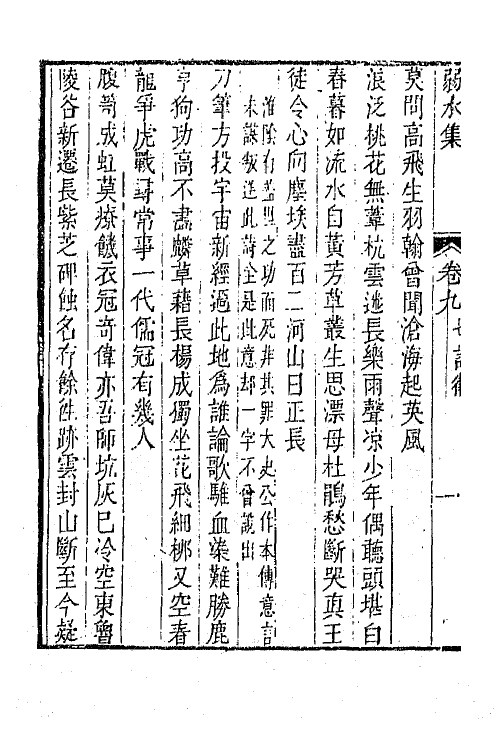 弱水集
卷九 七言律
莫問高飛生羽翰曾聞滄海起英風
浪泛桃花無葦杭雲迷長樂雨聲凉少年偶聽頭堪白
春暮如流水自黃芳草叢生思漂母杜鵑愁斷哭真王
徒令心向塵埃盡百二河山日正長
淮陰有蓋世之功而死非其罪太史公作本傳意言
未謀叛逆此詩全是此意却一字不曾說出
刀筆方投宇宙新經過此地爲誰論歌騅血染難勝鹿
烹狗功高不畫麟草藉長楊成獨坐花飛細柳又空春
龍爭虎戰尋常事一代儒冠有幾人
腹劍成虹莫療饑衣冠奇偉亦吾師坑灰已冷空東魯
陵谷新遷長紫芝碑蝕名存餘往跡雲封山斷至今疑